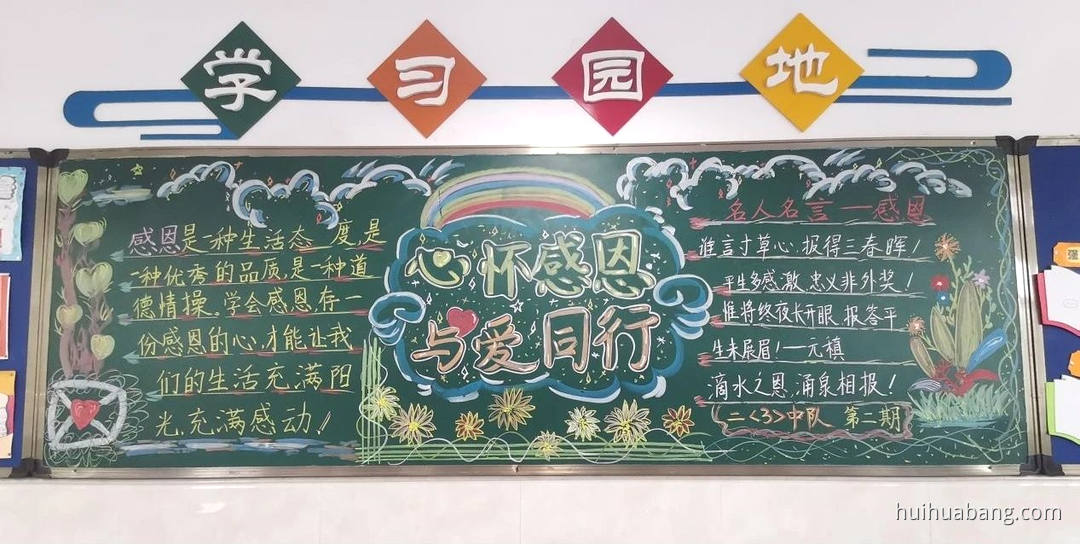 学习园地
感恩是一种生活态度,是
一种优秀的品质,是一种道
德情操。学会感恩,存一
份感恩的心,才能让我
们的生活充满阳
光,充满感动!
心怀感恩
与爱同行
名人名言——感恩
谁言寸草心,报得三春晖!
平生多感激,忠义非外奖!
惟将终夜长开眼,报答平
生未展眉!—元稹
滴水之恩,涌泉相报!
二<3>中队 第二期
huihuabang.com